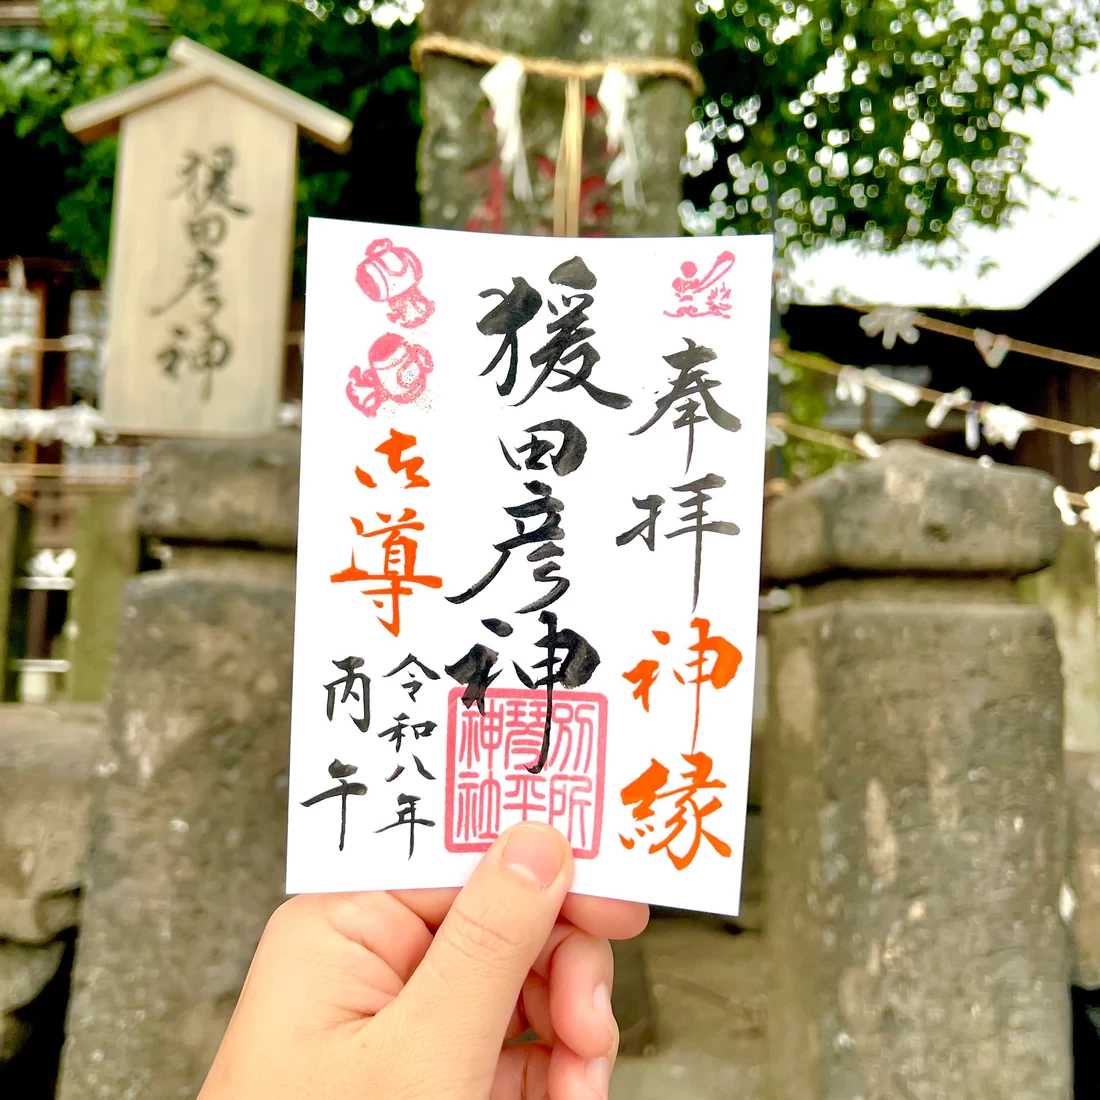 猨田彦神
奉拝 神縁
猨田彦神
別所
琴平
神社
御導
令和八年
丙午